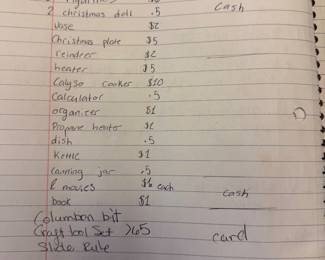 2 christmas doll .5 cash
vase $2
Christmas plate $5
reindeer $2
heater $5
Calyso cooker $10
Calculator .5
organizer $1
Propane heater $2
dish .5
Kettle $1
canning jar .5
movies $6 each cash
book $1
Columbon bit
Craft tool Set >65 card
Slide Rule